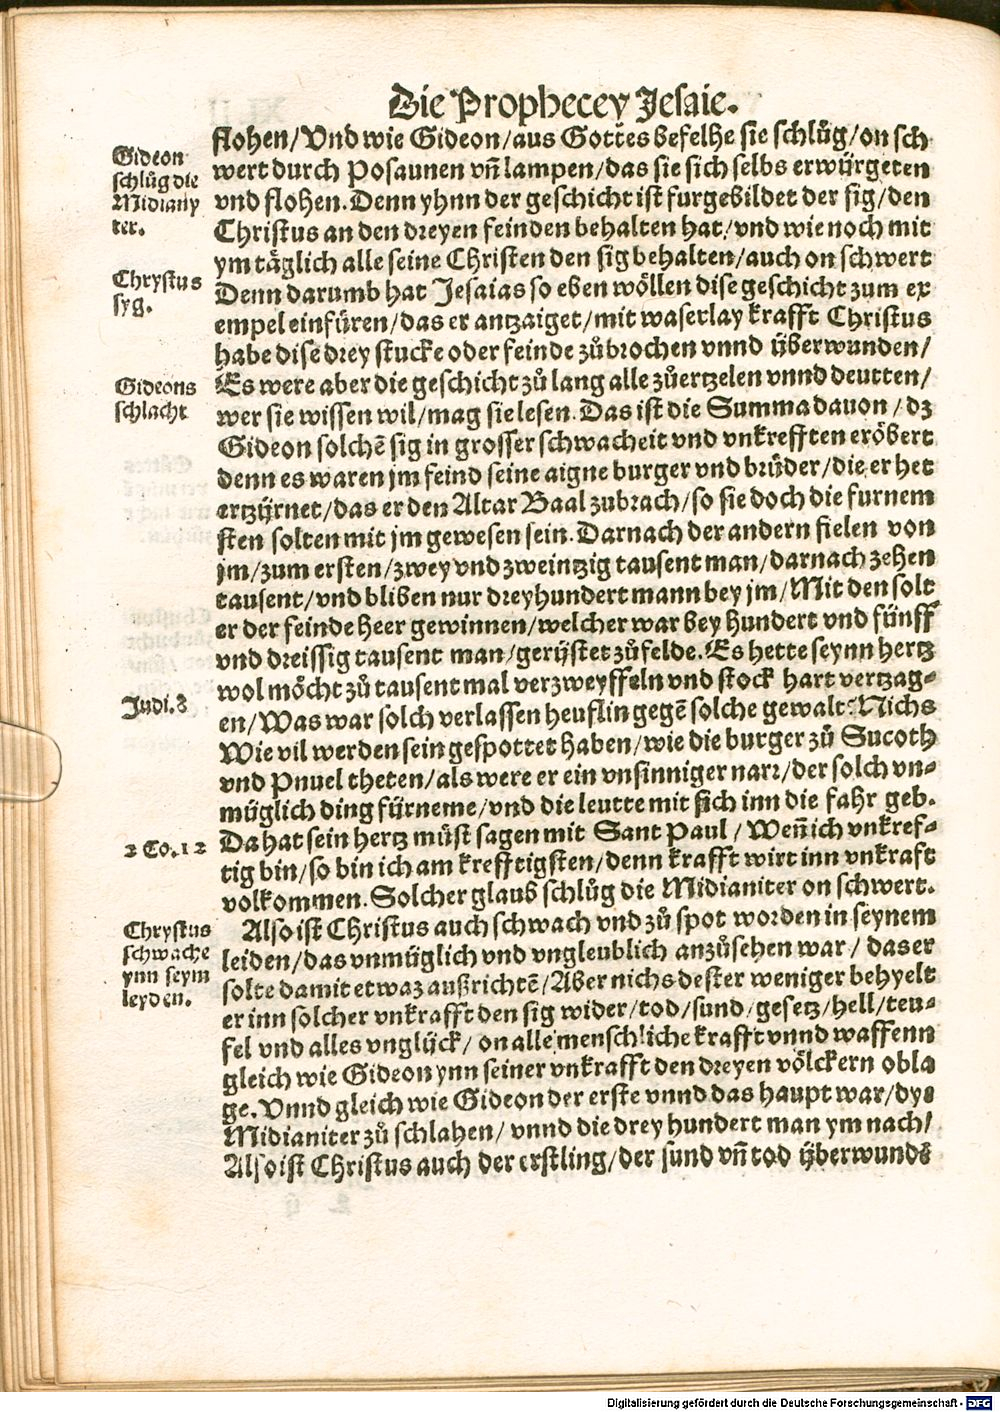 Die Prophecey Jesaie.
flohen/Vnd wie Gideon/aus Gottes befelhe sie schlůg/on sch
Gideon
schlůg die
Midiany
ter.
wert durch Posaunen vñ lampen/das sie sich selbs erwürgeten
vnd flohen. Denn yhnn der geschicht ist furgebildet der sig/den
Christus an den dreyen feinden behalten hat/vnd wie noch mit
ym täglich alle seine Christen den sig behalten/auch on schwert
Chrystus
syg.
Denn darumb hat Jesaias so eben wöllen dise geschicht zum ex
empel einfüren/das er antzaiget/mit waserlay krafft Christus
habe dise drey stucke oder feinde zůbrochen vnnd überwunden/
Gideons
schlacht
Es were aber die geschicht zů lang alle zůertzelen vnnd deutten/
wer sie wissen wil/mag sie lesen. Das ist die Summa dauon/dz
Gideon solchē sig in grosser schwacheit vnd vnkrefften eröbert
denn es waren jm feind seine aigne burger vnd brüder/die er het
ertzürnet/das er den Altar Baal zubrach/so sie doch die furnem
sten solten mit jm gewesen sein. Darnach der andern fielen von
jm/zum ersten/zwey vnd zweintzig tausent man/darnach zehen
tausent/vnd bliben nur dreyhundert mann bey jm/Mit den solt
er der feinde heer gewinnen/welcher war bey hundert vnd fünff
vnd dreissig tausent man/gerüstet zů felde. Es hette seynn hertz
wol möcht zů tausent mal verzweyffeln vnd stock hart vertzag-
Judi. 8
en/Was war solch verlassen heuflin gegē solche gewalt? Nichs
Wie vil werden sein gespottet haben/wie die burger zů Sucoth
vnd Pnuel theten/als were er ein vnsinniger narr/der solch vn-
müglich ding fürneme/vnd die leutte mit sich inn die fahr geb.
2 Co. 12
Da hat sein hertz můst sagen mit Sant Paul/Weñ ich vnkref-
tig bin/so bin ich am krefftigsten/denn krafft wirt inn vnkraft
volkommen. Solcher glaub schlůg die Midianiter on schwert.
Chrystus
schwache
ynn seym
leyden.
Also ist Christus auch schwach vnd zů spot worden in seynem
leiden/das vnmüglich vnd vngleublich anzůsehen war/das er
solte damit etwaz außrichtē/Aber nichs dester weniger behyelt
er inn solcher vnkrafft den sig wider/tod/sund/gesetz/hell/teu-
fel vnd alles vnglück/on alle menschliche krafft vnnd waffenn
gleich wie Gideon ynn seiner vnkrafft den dreyen völckern obla
ge. Vnnd gleich wie Gideon der erste vnnd das haupt war/dye
Midianiter zů schlahen/vnnd die drey hundert man ym nach/
Also ist Christus auch der erstling/der sund vñ tod überwundē
Digitalisierung gefördert durch die Deutsche Forschungsgemeinschaft - DFG